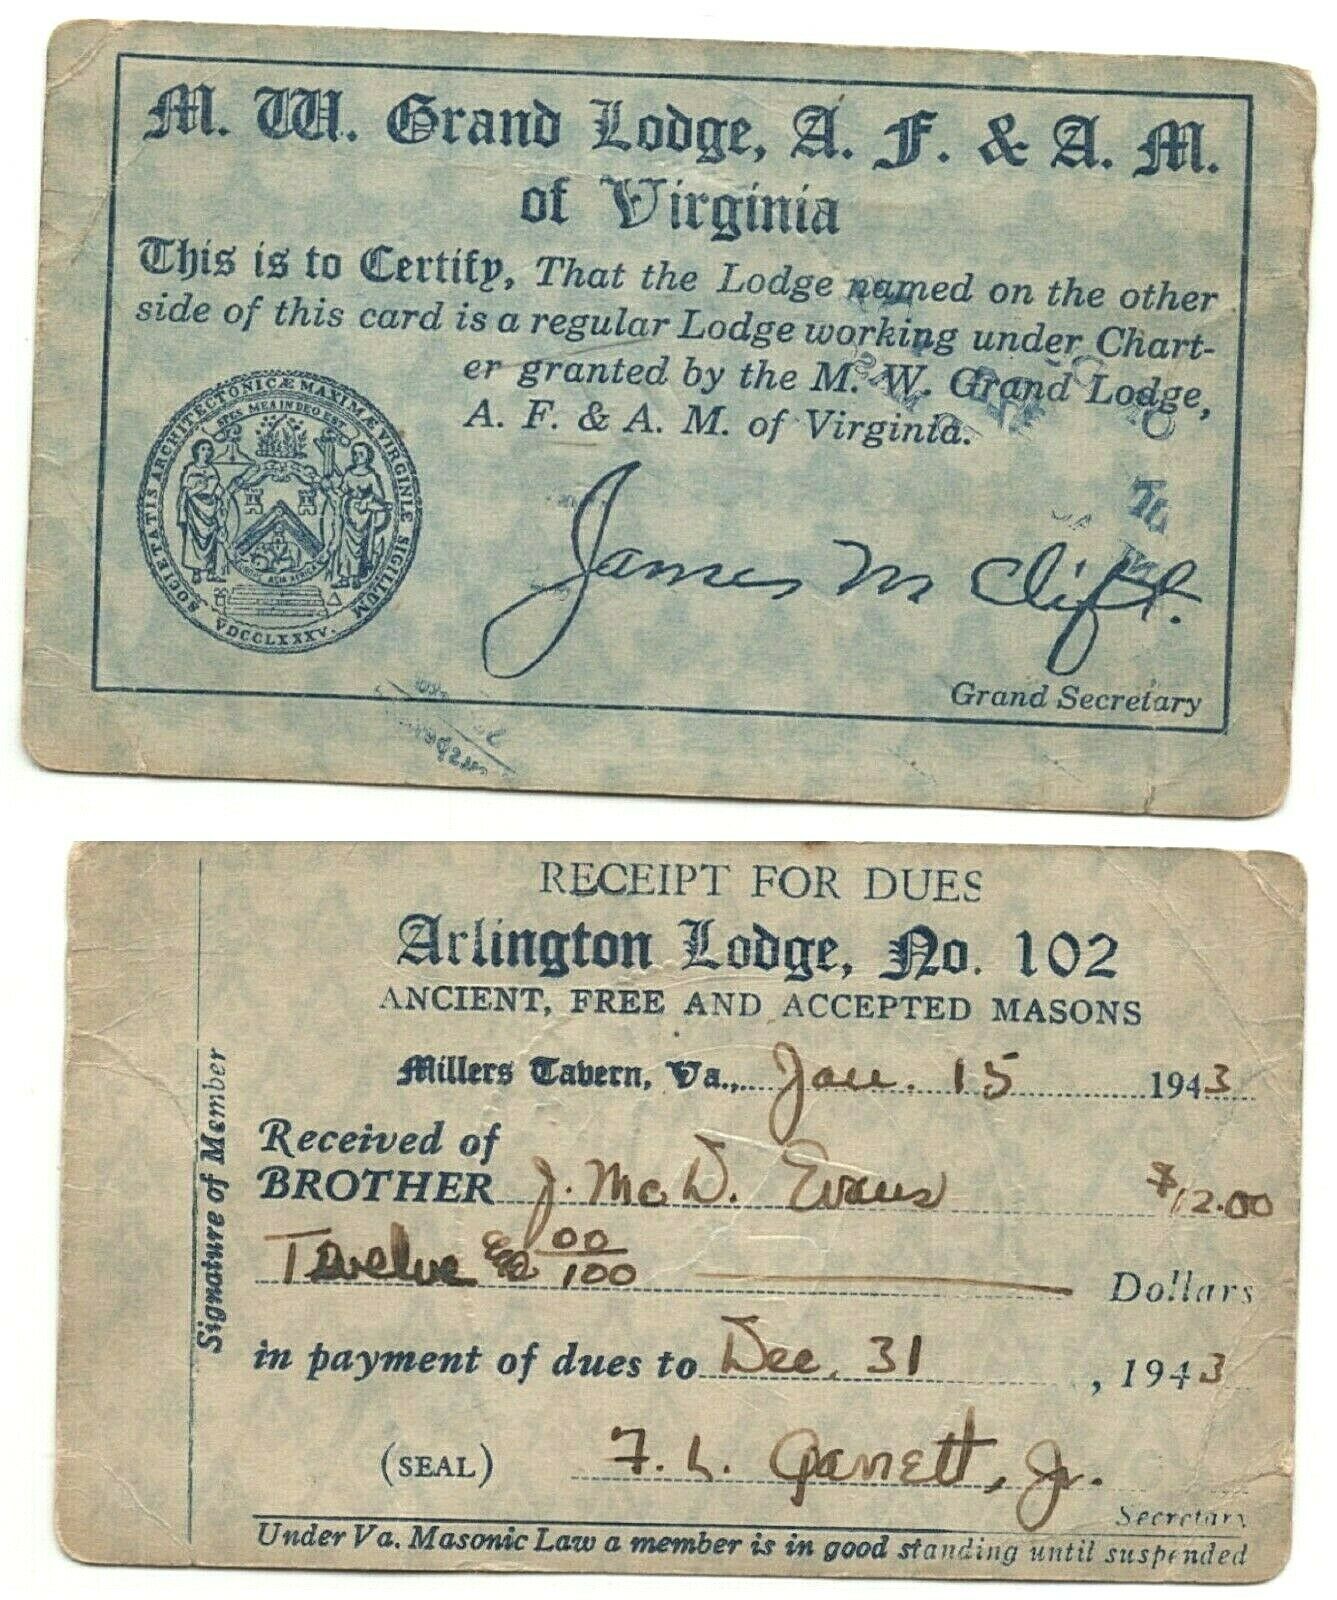 M. W. Grand Lodge, A. F. & A. M.
of Virginia
This is to Certify, That the Lodge named on the other
side of this card is a regular Lodge working under Chart-
er granted by the M. W. Grand Lodge,
A. F. & A. M. of Virginia.
SOCIETATIS ARCHITECTONICÆ MAXIMÆ VIRGINIÆ SIGILLUM
SPES MEA IN DEO EST
VDCCLXXXV.
James M Clift.
Grand Secretary
RECEIPT FOR DUES
Arlington Lodge, No. 102
ANCIENT, FREE AND ACCEPTED MASONS
Millers Tavern, Va., Jan. 15 1943
Received of
BROTHER J. McD. Evans $12.00
Twelve & 00/100 Dollars
in payment of dues to Dec. 31, 1943
(SEAL) F. L. Garrett, Jr.
Secretary
Under Va. Masonic Law a member is in good standing until suspended
Signature of Member